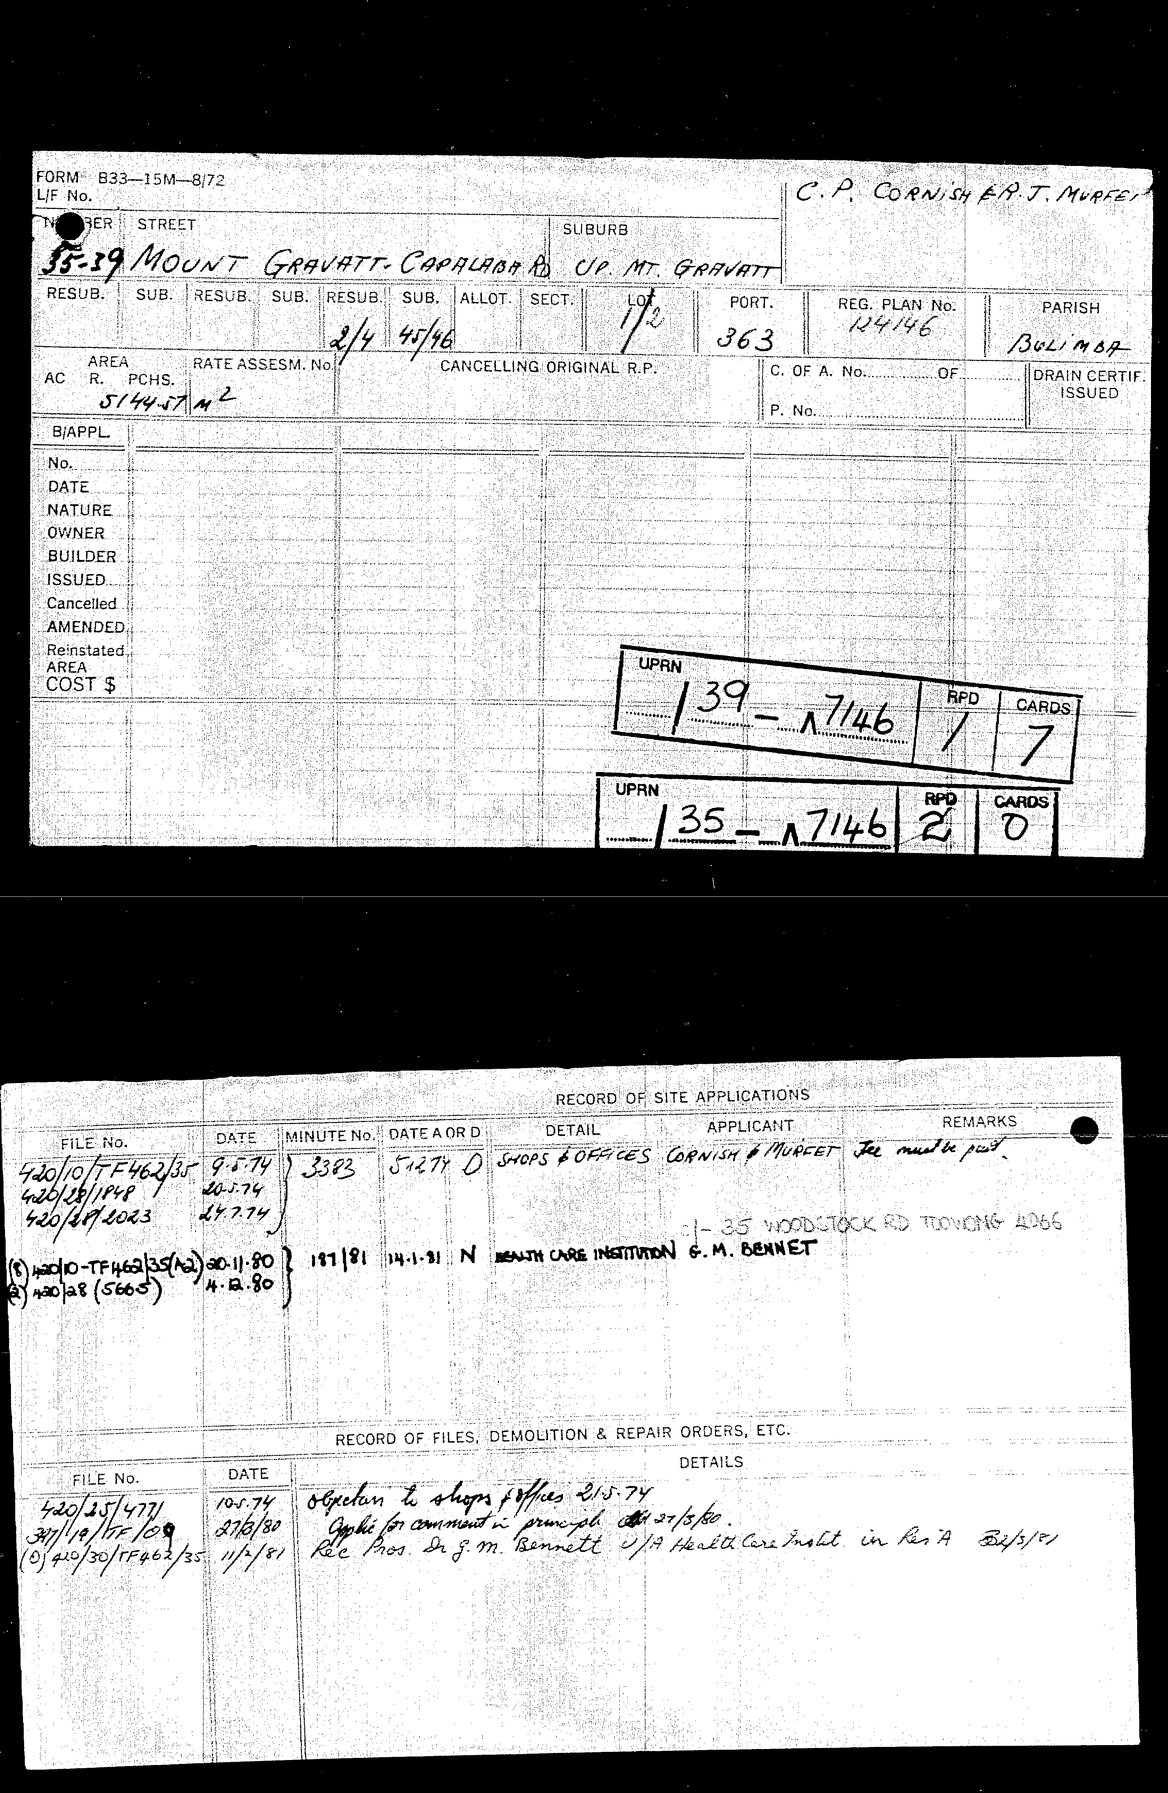 FORM B33—15M—8/72
L/F No.
C. P. CORNISH & R. J. MURFET
NUMBER STREET SUBURB
35-39 MOUNT GRAVATT-CAPALABA RD UP. MT. GRAVATT
RESUB. SUB. RESUB. SUB. RESUB. SUB. ALLOT. SECT. LOT PORT. REG. PLAN No. PARISH
2/4 45/46 1/2 363 124146 BULIMBA
AREA RATE ASSESM. No. CANCELLING ORIGINAL R.P. C. OF A. No. OF DRAIN CERTIF.
AC R. PCHS. ISSUED
5144.57 M2 P. No.
B/APPL.
No.
DATE
NATURE
OWNER
BUILDER
ISSUED
Cancelled
AMENDED
Reinstated
AREA
COST $
UPRN RPD CARDS
/ 39 — Λ7146 1 7
UPRN RPD CARDS
/ 35 — Λ7146 2 0
RECORD OF SITE APPLICATIONS
FILE No. DATE MINUTE No. DATE A OR D DETAIL APPLICANT REMARKS
420/10/TF462/35 9.5.74 } 3383 5.12.74 D SHOPS & OFFICES CORNISH & MURFET Fee must be paid.
420/28/1848 20.5.74
420/28/2023 24.7.74
:/- 35 WOODSTOCK RD TOOWONG 4066
(8) 420/10-TF462/35(A2) 20.11.80 } 187/81 14.1.81 N HEALTH CARE INSTITUTION G. M. BENNET
(2) 420/28 (5665) 4.12.80
RECORD OF FILES, DEMOLITION & REPAIR ORDERS, ETC.
FILE No. DATE DETAILS
420/25/4771 10.5.74 objection to shops & offices 21.5.74
397/19/TF/09 27/3/80 Applic for comment in principle 27/3/80.
(0) 420/30/TF462/35 11/2/81 Rec Pros. Dr G. M. Bennett U/A Health Care Instit. in Res 'A' 2/3/81